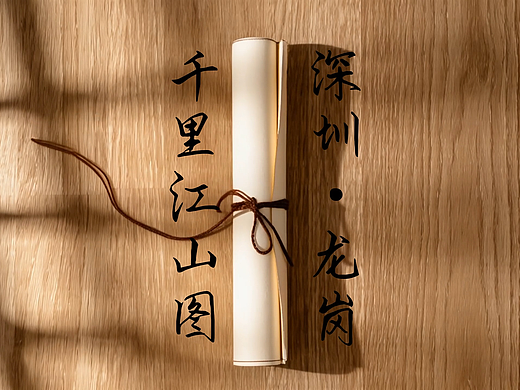 深圳·龙岗
千里江山图